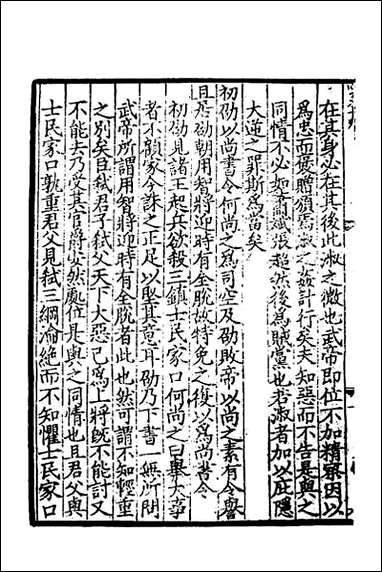 在其身必在其後此淑之微也武帝即位不加精察因以
爲忠而褒贈頒焉淑之姦計行矣夫知惡而不告是與之
同情不必如蕭斌張超然後爲賊黨也若淑者加以庇隱
大逆之罪斯爲當矣
初劭以尚書令何尚之爲司空及劭敗帝以尚之素有令譽
且居劭朝用智將迎時有全脫故特免之復以爲尚書令
初劭見諸王起兵欲殺三鎮士民家口何尚之曰舉大事
者不顧家今誅之正足以堅其意耳劭乃下書一無所問
武帝所謂用智將迎時有全脫者此也然可謂不知輕重
之別矣臣弒君子弒父天下大惡已爲上將旣不能討又
不能去乃受其官爵必然處位是與之同情也且君父與
士民家口孰重君父見弒三綱淪絕而不知懼士民家口